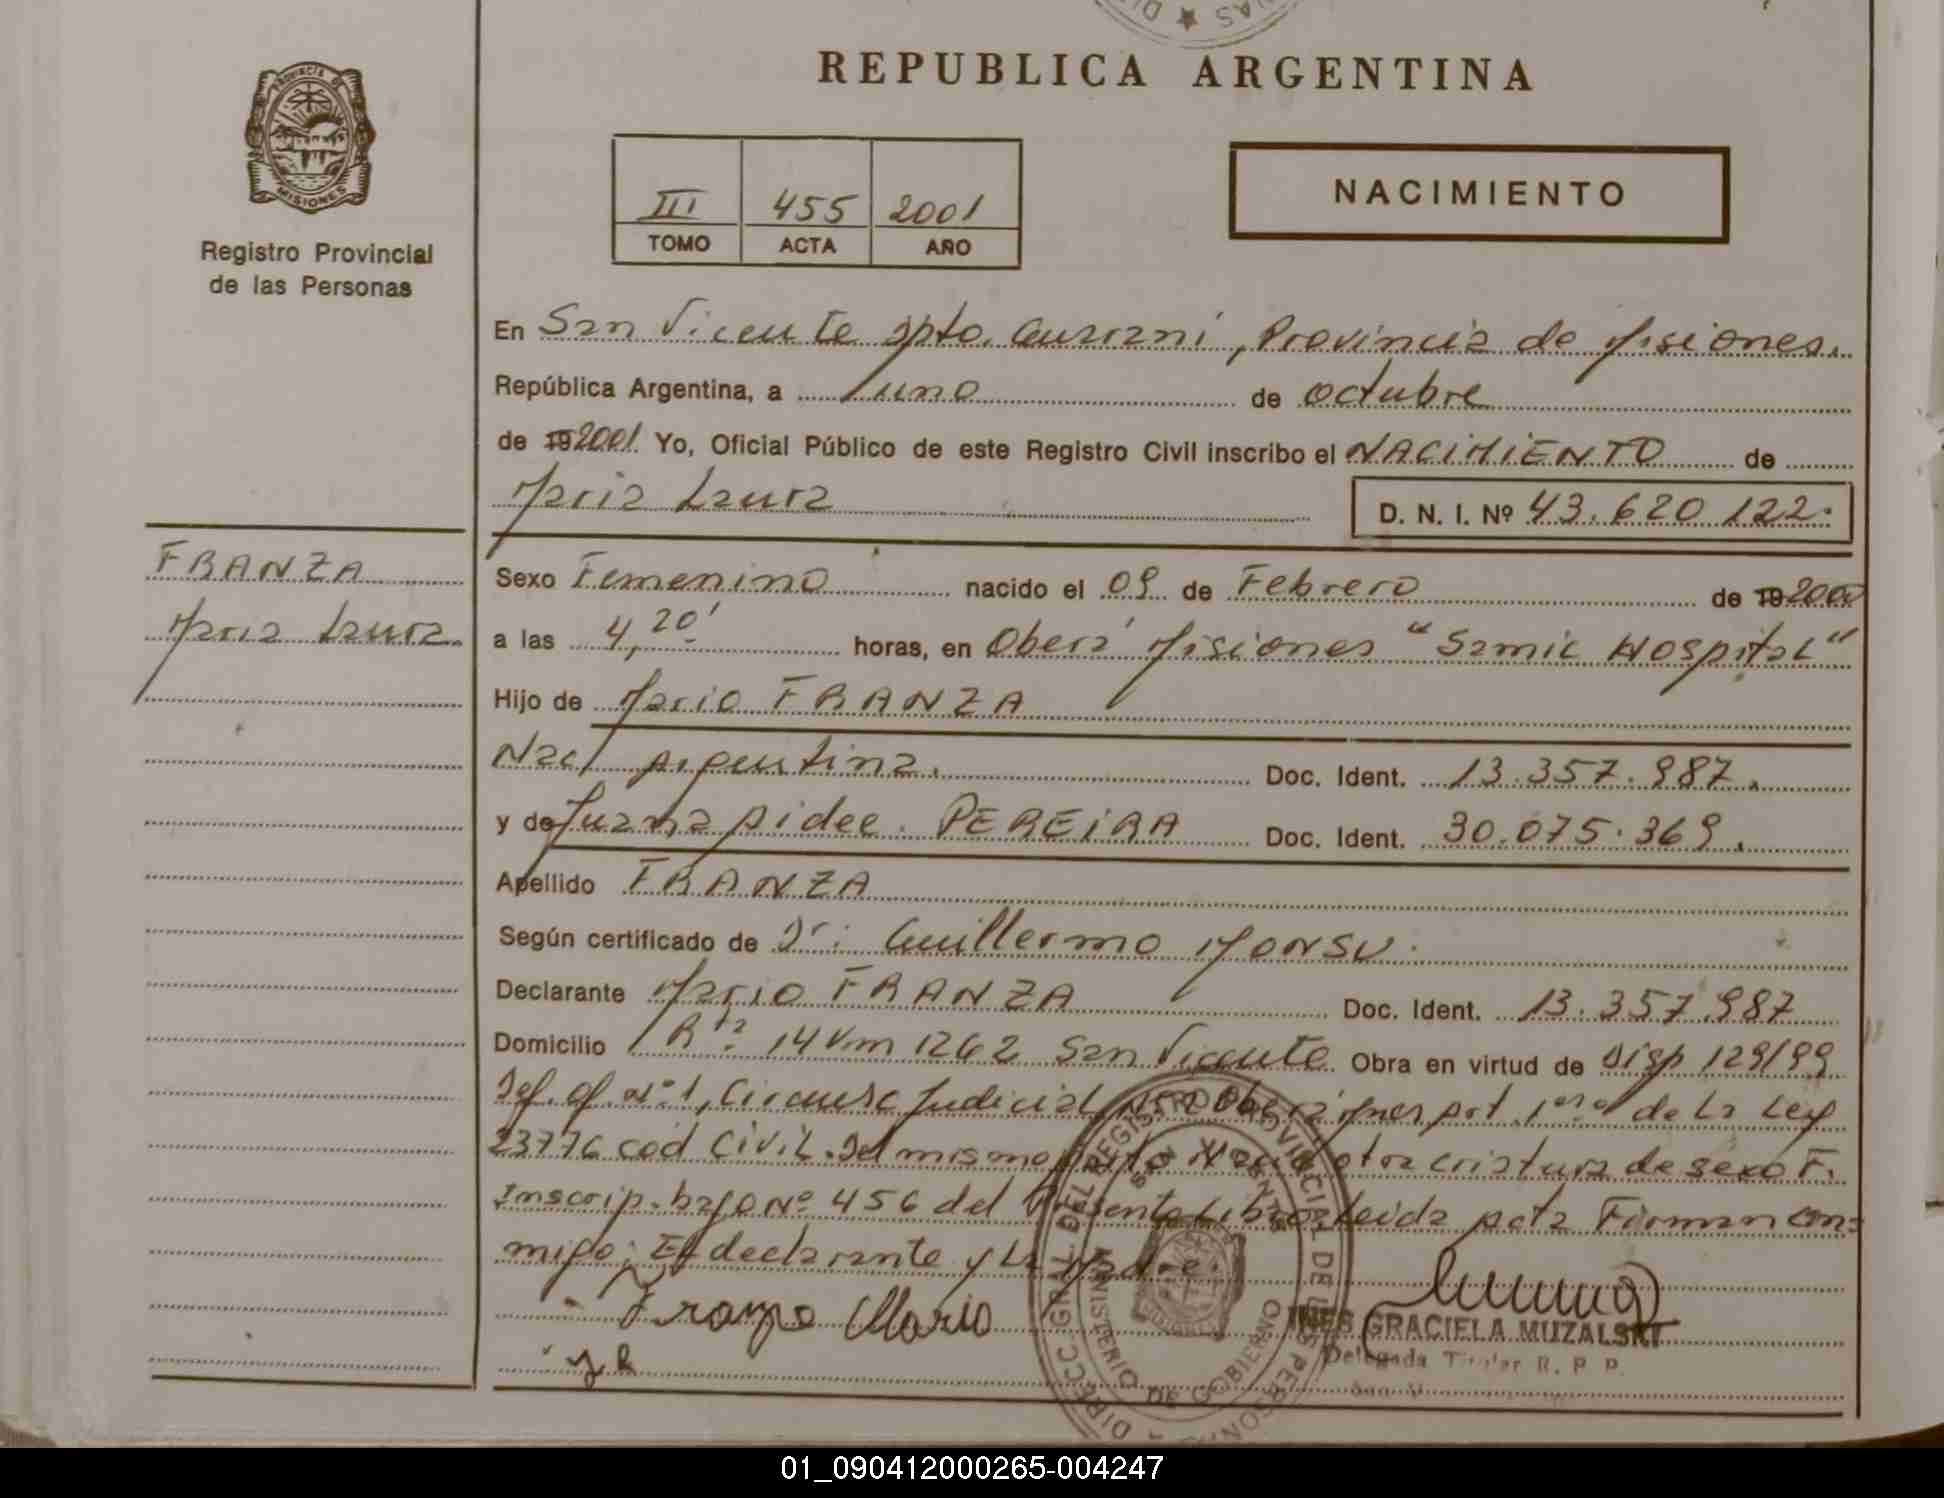 REPUBLICA ARGENTINA
PROVINCIA DE
MISIONES
Registro Provincial
de las Personas
III 455 2001
TOMO ACTA AÑO
NACIMIENTO
En San Vicente Dpto. Guarani, Provincia de Misiones.
República Argentina, a uno de octubre
de 19 2001. Yo, Oficial Público de este Registro Civil inscribo el NACIMIENTO de
Maria Laura D. N. I. Nº 43.620 122.
FRANZA
Maria Laura
Sexo Femenino nacido el 09 de Febrero de 19 2000
a las 4,20' horas, en Oberá Misiones "Samic Hospital"
Hijo de Mario FRANZA
Nac/ Argentina. Doc. Ident. 13.357.987.
y de Juana Aidee. PEREIRA Doc. Ident. 30.075.369.
Apellido FRANZA
Según certificado de Dr: Guillermo MONSU.
Declarante Mario FRANZA Doc. Ident. 13.357.987
Domicilio Rta 14 Km 1262 San Vicente. Obra en virtud de Disp 129/99
Def. Of. Nº 1, Circunsc Judicial Oberá Mnes Art. 1ero de La Ley
23776 cod CiViL. Del mismo parto Nació otra criatura de sexo F.
Inscrip. bajo Nº 456 del Presente Libro. Leida Acta Firman con-
migo: El declarante y La Madre.
Franza Mario
INES GRACIELA MUZALSKI
Delegada Titular R. P. P.
DIRECC. GRAL. DEL REGISTRO PROVINCIAL DE LAS PERSONAS
SAN VICENTE
MINISTERIO DE GOBIERNO
01_090412000265-004247